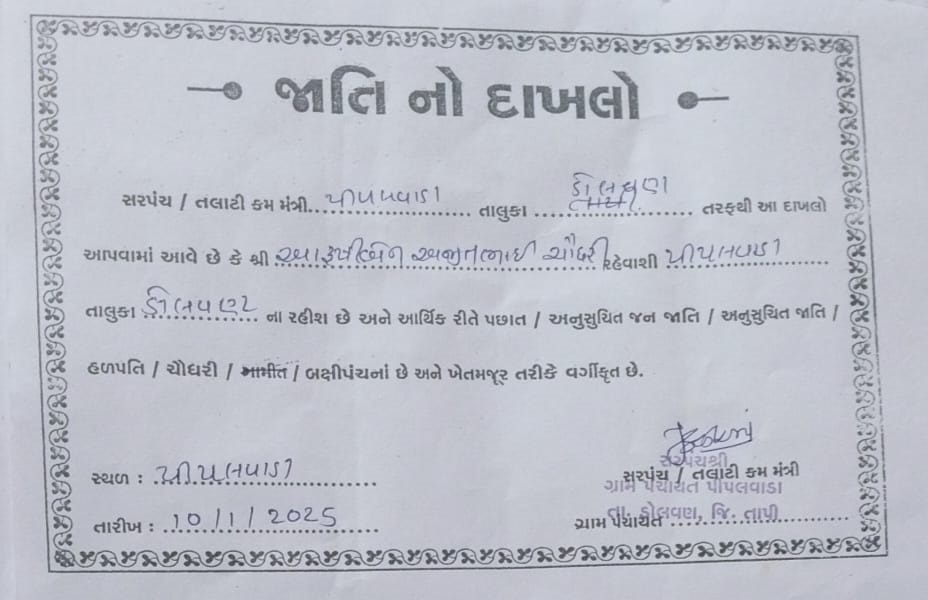 જાતિ નો દાખલો
સરપંચ / તલાટી કમ મંત્રી પીપલવાડા તાલુકા ડોલવણ તરફથી આ દાખલો
આપવામાં આવે છે કે શ્રી અજીતભાઈ ચૌધરી રહેવાશી પીપલવાડા
તાલુકા ડોલવણ ના રહીશ છે અને આર્થિક રીતે પછાત / અનુસુચિત જન જાતિ / અનુસુચિત જાતિ /
હળપતિ / ચૌધરી / ગામીત / બક્ષીપંચનાં છે અને ખેતમજૂર તરીકે વર્ગીકૃત છે.
સરપંચશ્રી
સ્થળ : પીપલવાડા સરપંચ / તલાટી કમ મંત્રી
ગ્રામ પંચાયત પીપલવાડા
તારીખ : 10/1/2025 ગ્રામ પંચાયત
તા. ડોલવણ, જિ. તાપી